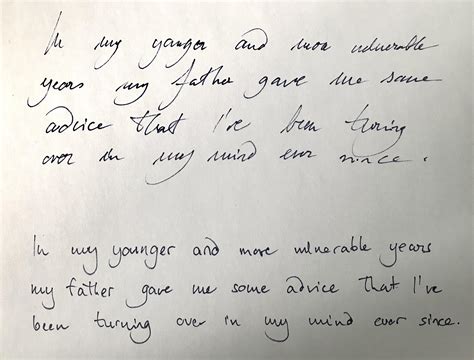 In my yonger and more vulnerable
years my father gave me some
advice that I've been turing
over in my mind ever since.
In my younger and more vulnerable years
my father gave me some advice that I've
been turning over in my mind ever since.